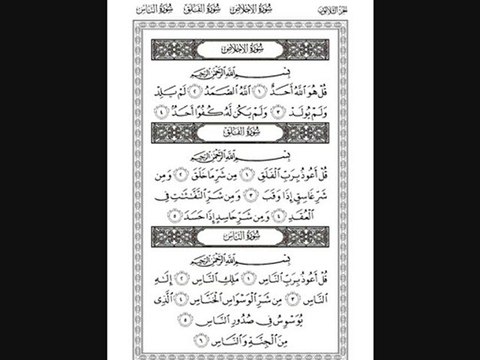 سُورَةُ الإِخْلَاصِ سُورَةُ الفَلَقِ سُورَةُ النَّاسِ
الجزء الثلاثون
سُورَةُ الإِخْلَاصِ
بِسْمِ ٱللَّهِ ٱلرَّحْمَٰنِ ٱلرَّحِيمِ
قُلْ هُوَ ٱللَّهُ أَحَدٌ ١ ٱللَّهُ ٱلصَّمَدُ ٢ لَمْ يَلِدْ
وَلَمْ يُولَدْ ٣ وَلَمْ يَكُن لَّهُۥ كُفُوًا أَحَدٌۢ ٤
سُورَةُ الفَلَقِ
بِسْمِ ٱللَّهِ ٱلرَّحْمَٰنِ ٱلرَّحِيمِ
قُلْ أَعُوذُ بِرَبِّ ٱلْفَلَقِ ١ مِن شَرِّ مَا خَلَقَ ٢ وَمِن
شَرِّ غَاسِقٍ إِذَا وَقَبَ ٣ وَمِن شَرِّ ٱلنَّفَّٰثَٰتِ فِى
ٱلْعُقَدِ ٤ وَمِن شَرِّ حَاسِدٍ إِذَا حَسَدَ ٥
سُورَةُ النَّاسِ
بِسْمِ ٱللَّهِ ٱلرَّحْمَٰنِ ٱلرَّحِيمِ
قُلْ أَعُوذُ بِرَبِّ ٱلنَّاسِ ١ مَلِكِ ٱلنَّاسِ ٢ إِلَٰهِ
ٱلنَّاسِ ٣ مِن شَرِّ ٱلْوَسْوَاسِ ٱلْخَنَّاسِ ٤ ٱلَّذِى
يُوَسْوِسُ فِى صُدُورِ ٱلنَّاسِ ٥
مِنَ ٱلْجِنَّةِ وَٱلنَّاسِ ٦